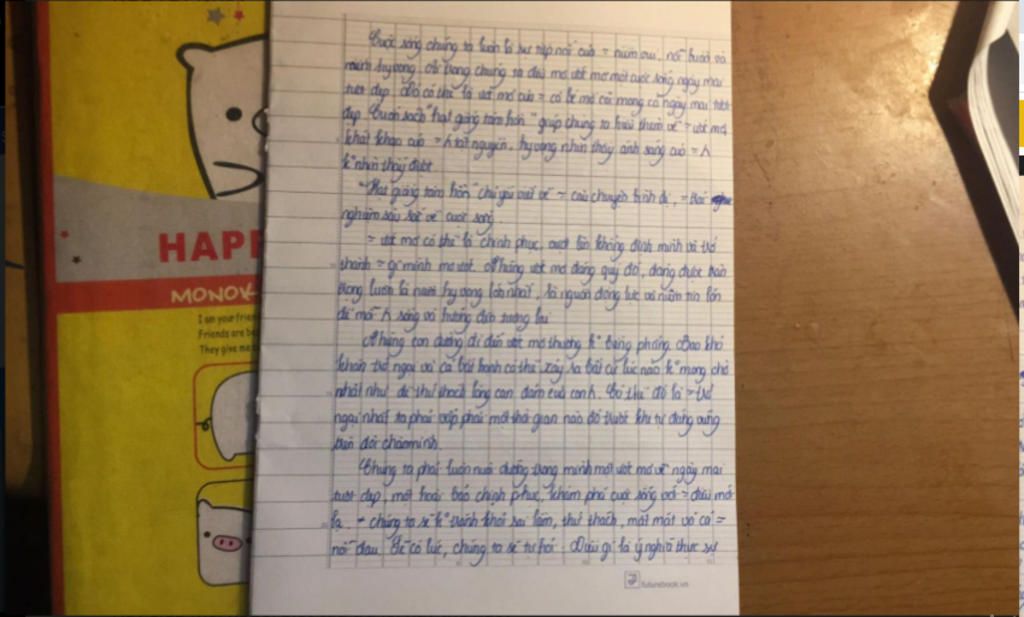 HAPP
MONOK
I am your frien
Friends are be
They give me
Cuộc sống chúng ta luôn là sự tiếp nối của = niềm vui, nỗi buồn và
niềm hy vọng. Ai trong chúng ta đều mơ ước mơ một cuộc sống ngày mai
tươi đẹp. Đó có thể là ước mơ của = cô bé mồ côi mong có ngày mai tươi
đẹp. Cuốn sách "hạt giống tâm hồn" giúp chúng ta hiểu thêm về = ước mơ,
khát khao của = λ tật nguyền, hy vọng nhìn thấy ánh sáng của = λ
k° nhìn thấy được.
"Hạt giống tâm hồn" chủ yếu viết về ~ câu chuyện bình dị, = trải
nghiệm sâu sắc về cuộc sống.
= ước mơ có thể là chinh phục, vượt lên khẳng định mình và trở
thành = gì mình mơ ước. Những ước mơ đáng quý đó, đáng được trân
trọng luôn là hy vọng lớn nhất, là nguồn động lực và niềm tin lớn
để mỗi λ sống và hướng đến tương lai
Những con đường đi đến ước mơ thường k° bằng phẳng. Bao khó
khăn trở ngại và cả bất hạnh có thể xảy ra bất cứ lúc nào k° mong chờ
nhất như để thử thách lòng can đảm của con λ. Có thể đó là = trở
ngại nhất ta phải vấp phải một thời gian nào đó trước khi tự đứng vững
trên đôi chân mình.
Chúng ta phải luôn nuôi dưỡng trong mình một ước mơ về ngày mai
tươi đẹp, một hoài bão chinh phục, khám phá cuộc sống với = điều mới
lạ. chúng ta sẽ k° tránh khỏi sai lầm, thử thách, mất mát và cả =
nỗi đau. Để có lúc, chúng ta sẽ tự hỏi: Điều gì là ý nghĩa thực sự
futurebook.vn